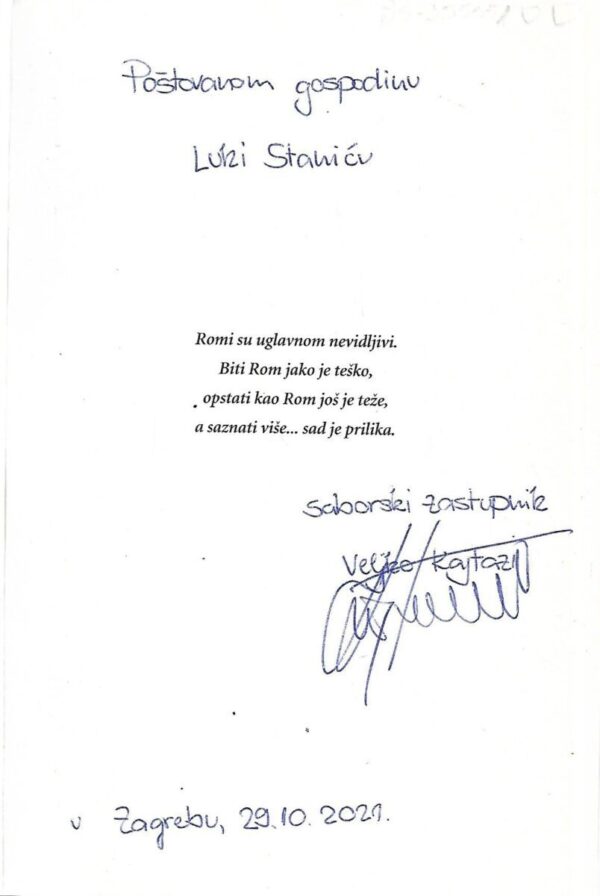 Poštovanom gospodinu
Luki Staniću
Romi su uglavnom nevidljivi.
Biti Rom jako je teško,
opstati kao Rom još je teže,
a saznati više... sad je prilika.
saborski zastupnik
Veljko Kajtazi
u Zagrebu, 29.10.2021.